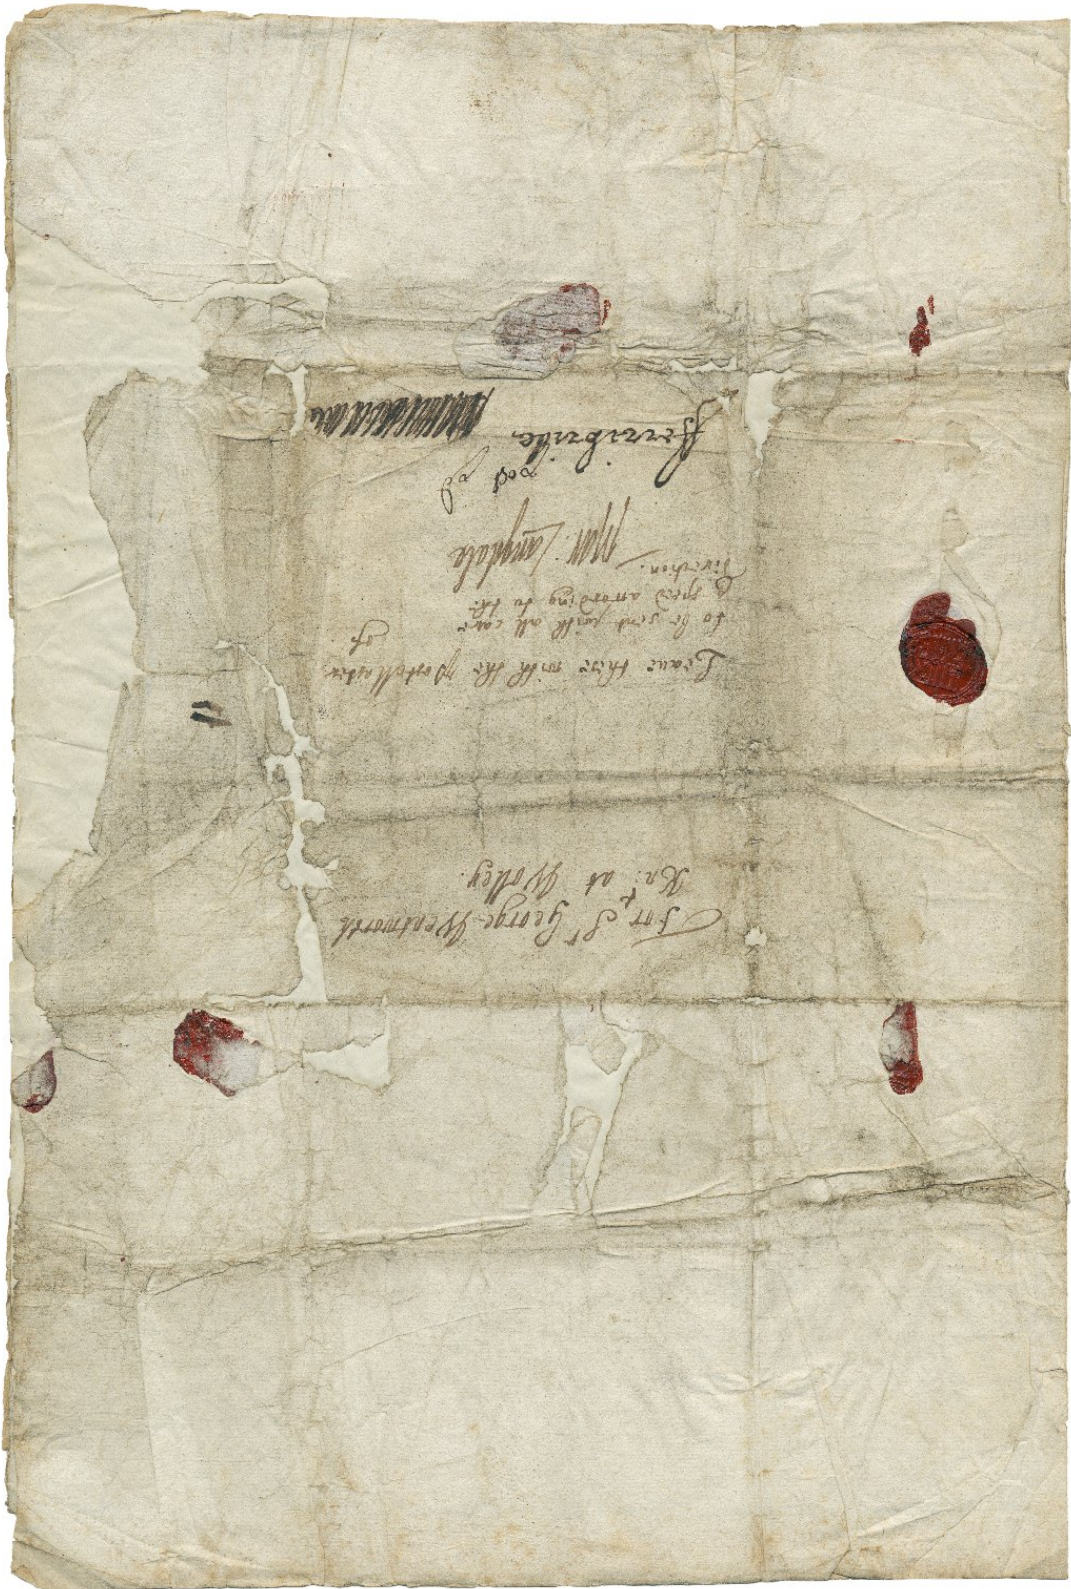 For Sr George Wentworth
Kn:t at Wolley.
Leaue these with the Postmaster
of
to be sent with all care
& speed according to the
direction.
Mar: Langdale
post pd
Ferribride